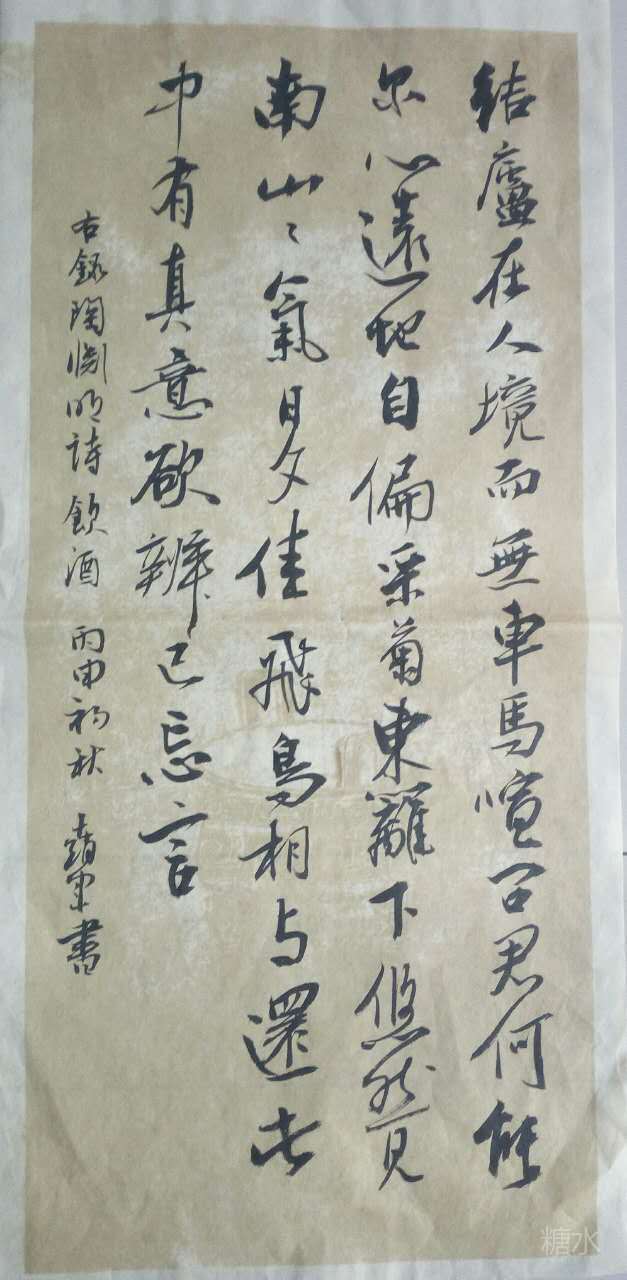 結廬在人境而無車馬喧问君何能
尔心遠地自偏采菊東籬下悠然見
南山〻氣日夕佳飛鳥相与還此
中有真意欲辨已忘言
右録陶渊明詩飲酒 丙申初秋 書
糖水